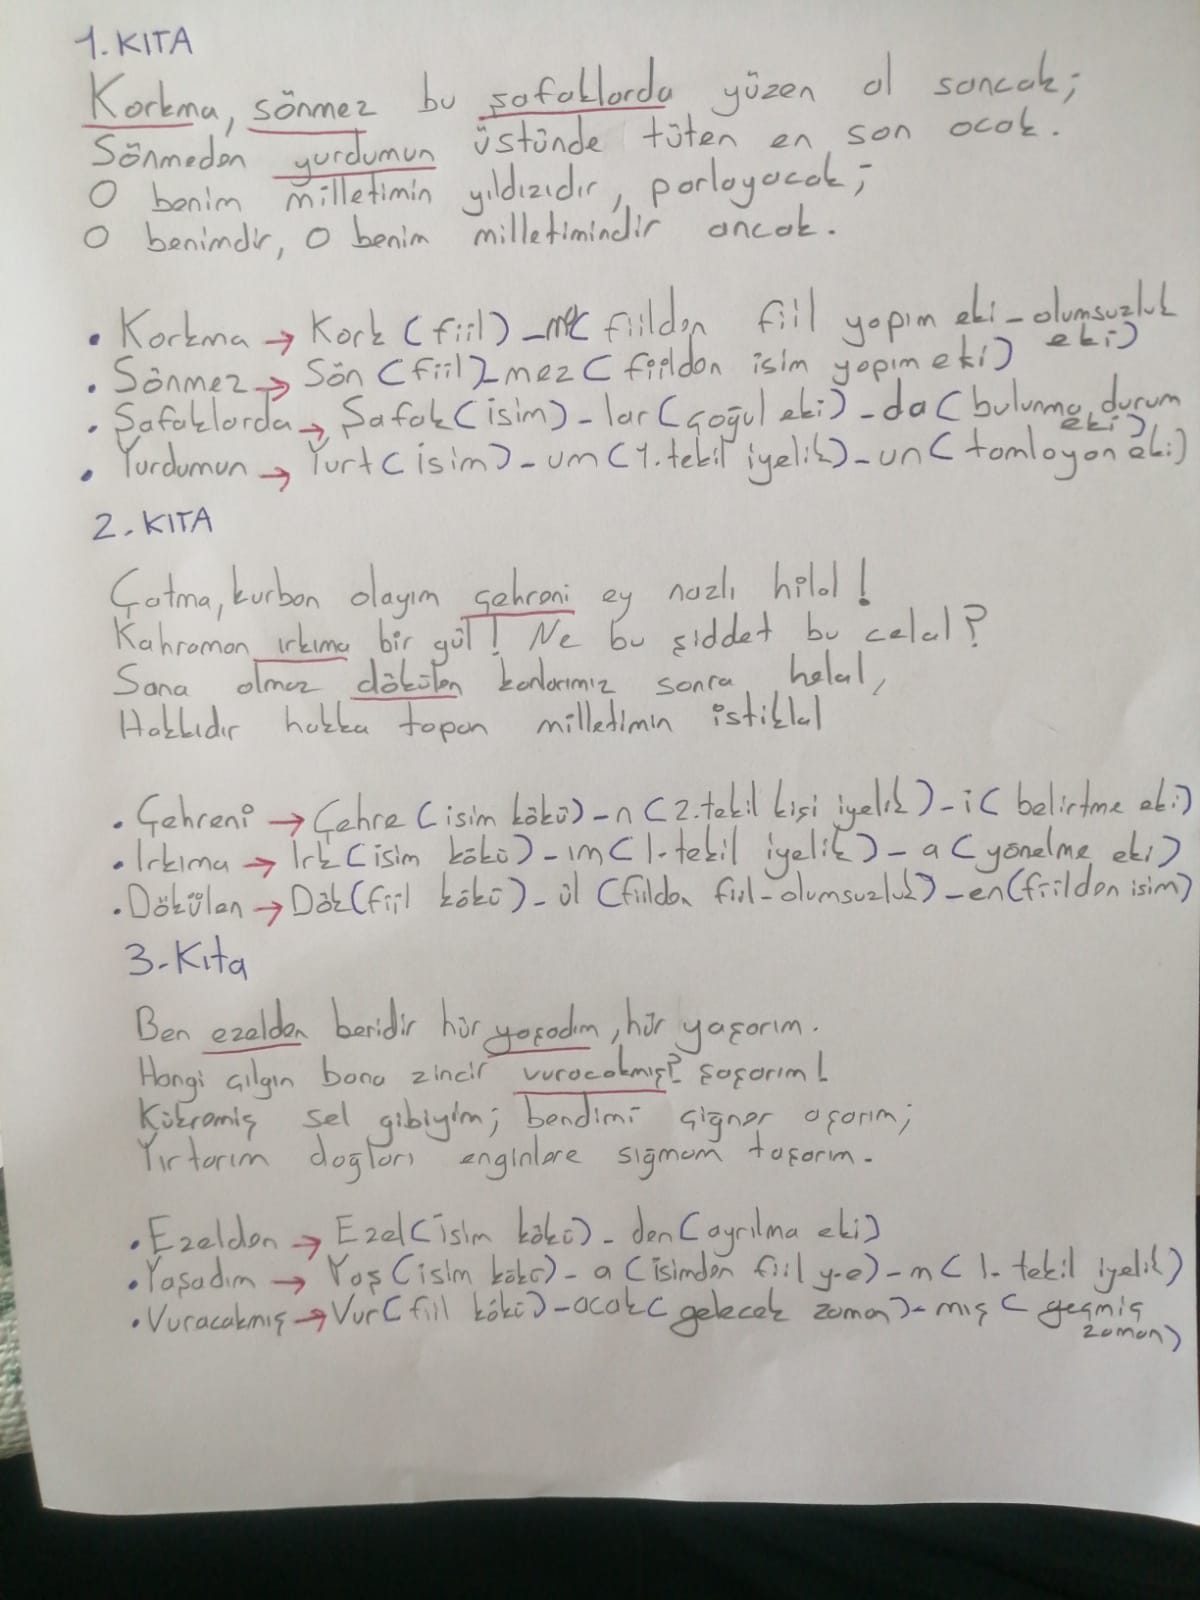 1. KITA
Korkma, sönmez bu şafaklarda yüzen al sancak;
Sönmeden yurdumun üstünde tüten en son ocak.
O benim milletimin yıldızıdır, parlayacak;
O benimdir, O benim milletimindir ancak.
• Korkma → Kork (fiil) - me (fiilden fiil yapım eki - olumsuzluk
eki)
• Sönmez → Sön (fiil) - mez (fiilden isim yapım eki)
• Şafaklarda → Şafak (isim) - lar (çoğul eki) - da (bulunma durum
eki)
• Yurdumun → Yurt (isim) - um (1. tekil iyelik) - un (tamlayan eki)
2. KITA
Çatma, kurban olayım çehreni ey nazlı hilal!
Kahraman ırkıma bir gül! Ne bu şiddet bu celal?
Sana olmaz dökülen kanlarımız sonra helal,
Hakkıdır hakka tapan milletimin istiklal
• Çehreni → Çehre (isim kökü) - n (2. tekil kişi iyelik) - i (belirtme eki)
• Irkıma → Irk (isim kökü) - ım (1. tekil iyelik) - a (yönelme eki)
• Dökülen → Dök (fiil kökü) - ül (fiilden fiil - olumsuzluk) - en (fiilden isim)
3-Kıta
Ben ezelden beridir hür yaşadım, hür yaşarım.
Hangi çılgın bana zincir vuracakmış? şaşarım!
Kükremiş sel gibiyim; bendimi çiğner aşarım;
Yırtarım dağları enginlere sığmam taşarım.
• Ezelden → Ezel (isim kökü) - den (ayrılma eki)
• Yaşadım → Yaş (isim kökü) - a (isimden fiil y-e) - m (1. tekil iyelik)
• Vuracakmış → Vur (fiil kökü) - acak (gelecek zaman) - mış (geçmiş
zaman)